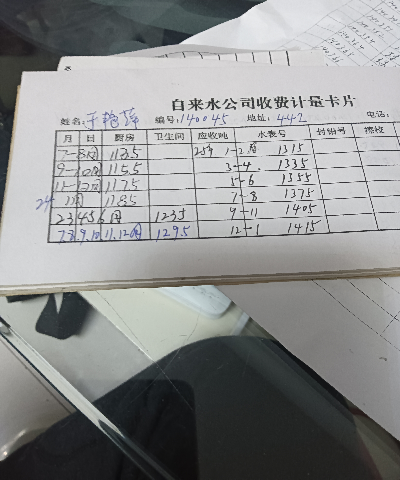 自来水公司收费计量卡片
姓名: 于艳萍 编号: 140045 地址: 442 电话:
月 日 厨房 卫生间 应收吨 水表号 封铅号 擦校
7-8月 1135 25年 1-2月 1315
9-10月 1155 3-4. 1335
11-12月 1175 5-6 1355
24 1月 1185 7-8 1375
2 3 4 5 6月 1235 9-11 1405
7.8.9.10 11.12月 1295 12-1 1415